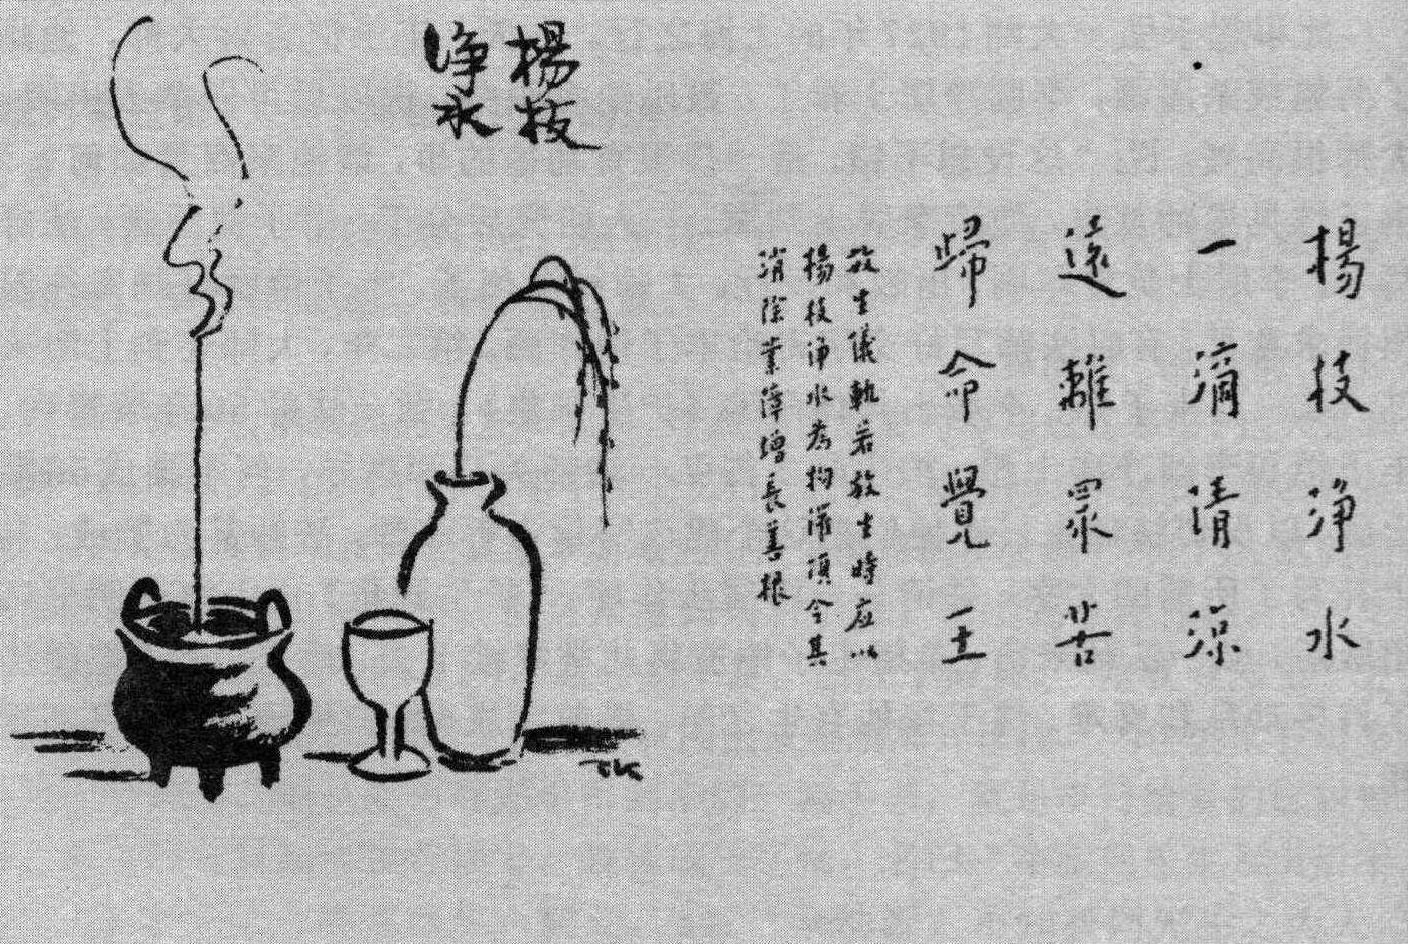 楊枝
淨水
楊枝淨水
一滴清涼
遠離眾苦
歸命覺王
放生儀軌若放生時应以
楊枝淨水為物灌頂令其
消除業障增長善根
TK